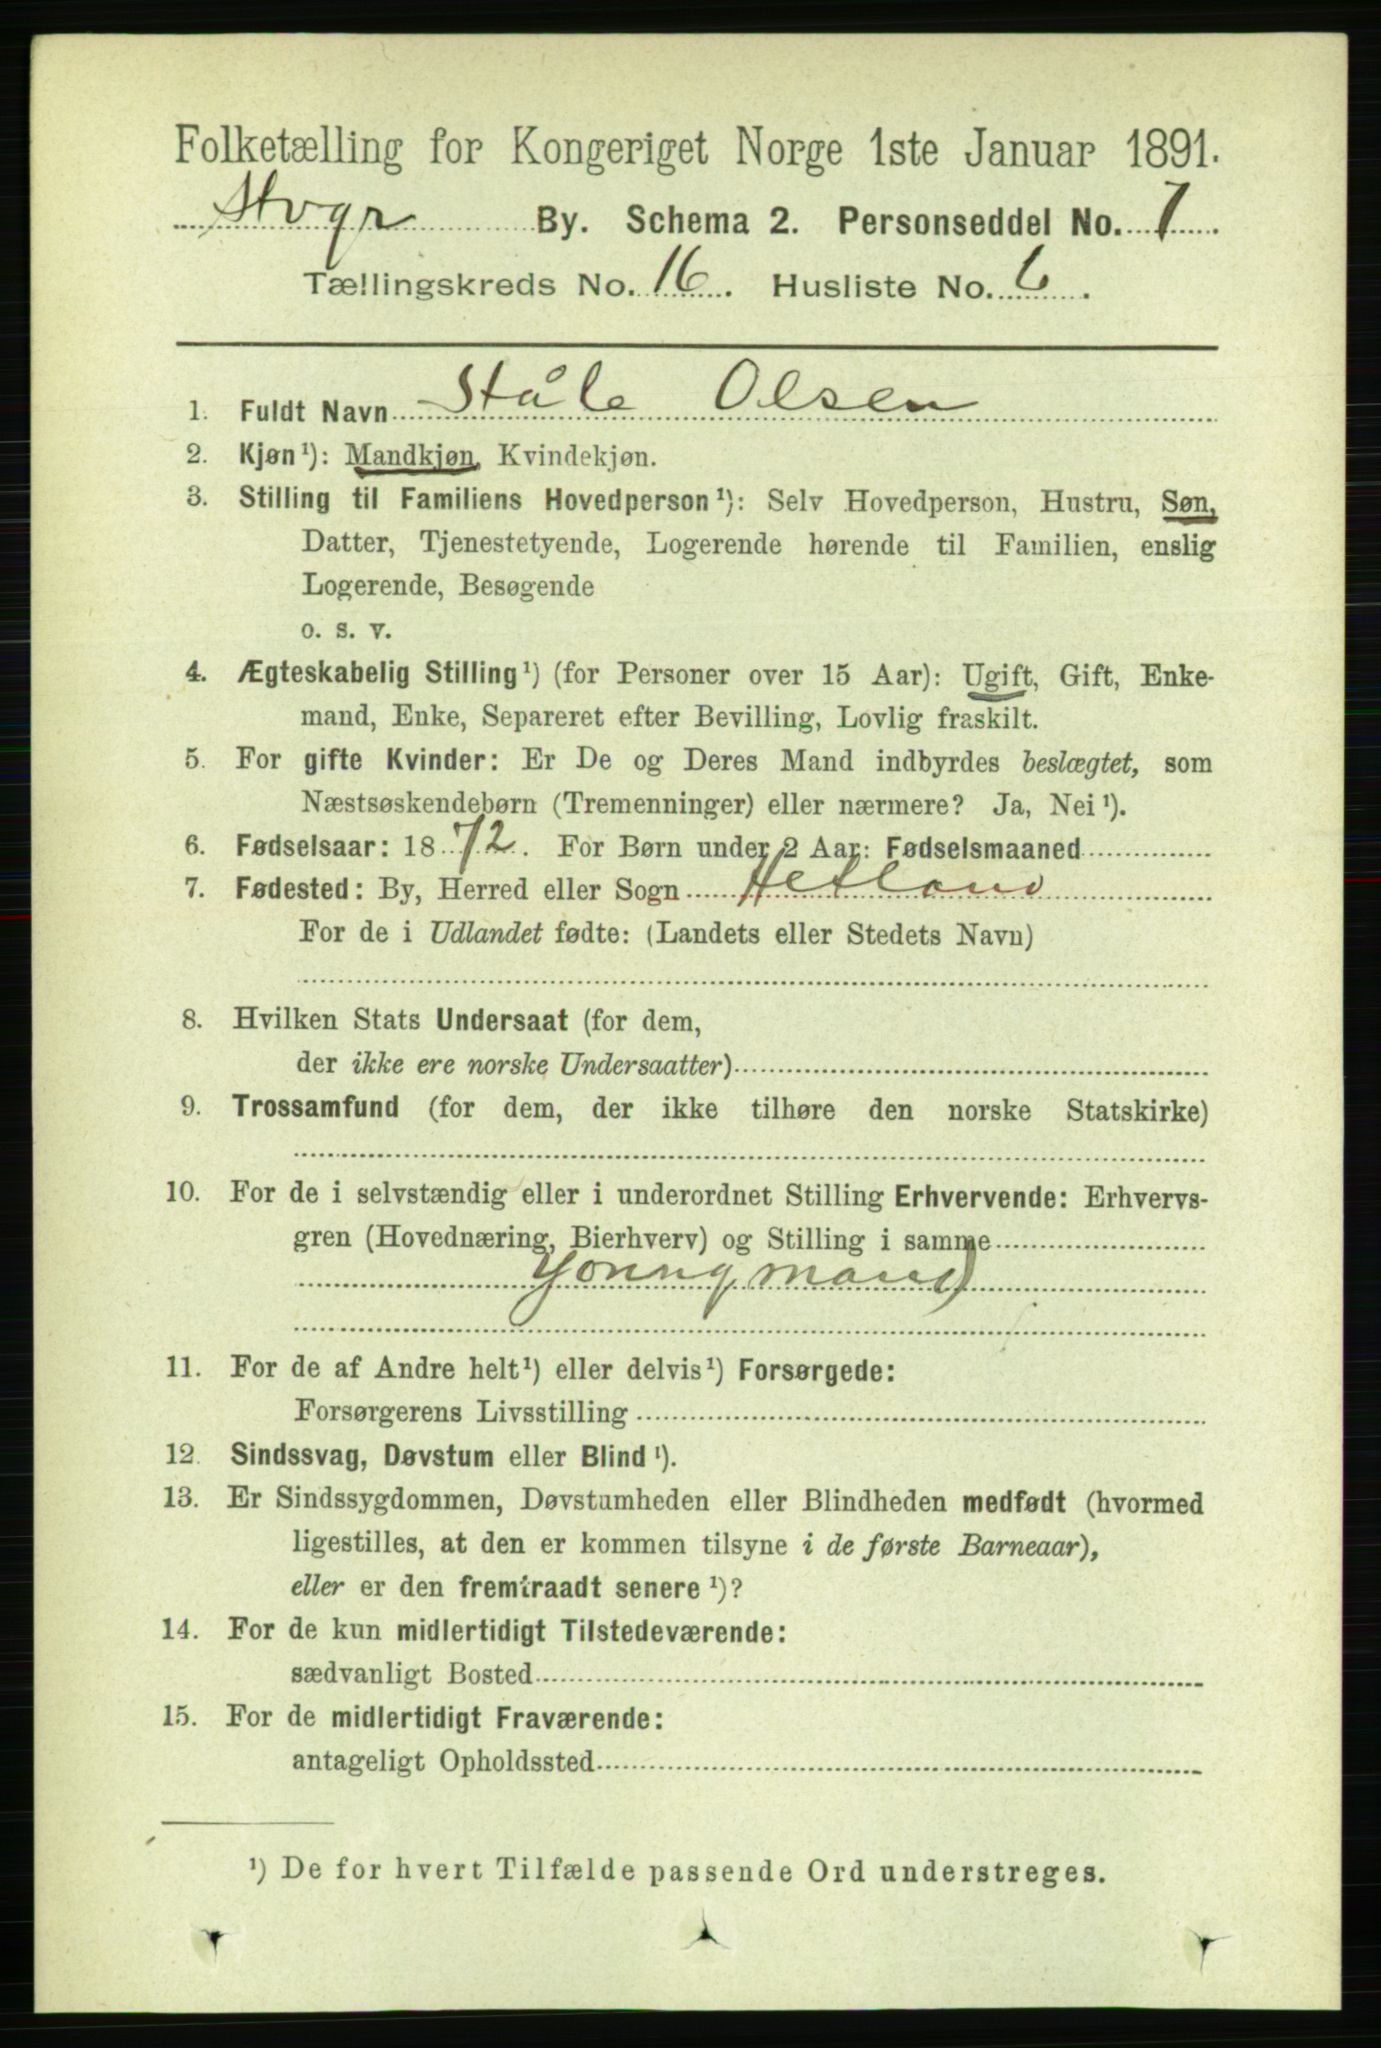 Folketælling for Kongeriget Norge 1ste Januar 1891.
Stvgr By. Schema 2. Personseddel No. 7
Tællingskreds No. 16. Husliste No. 6.
1. Fuldt Navn Ståle Olsen
2. Kjøn¹): Mandkjøn, Kvindekjøn.
3. Stilling til Familiens Hovedperson¹): Selv Hovedperson, Hustru, Søn,
Datter, Tjenestetyende, Logerende hørende til Familien, enslig
Logerende, Besøgende
o. s. v.
4. Ægteskabelig Stilling¹) (for Personer over 15 Aar): Ugift, Gift, Enke-
mand, Enke, Separeret efter Bevilling, Lovlig fraskilt.
5. For gifte Kvinder: Er De og Deres Mand indbyrdes beslægtet, som
Næstsøskendebørn (Tremenninger) eller nærmere? Ja, Nei¹).
6. Fødselsaar: 1872. For Børn under 2 Aar: Fødselsmaaned
7. Fødested: By, Herred eller Sogn Hetland
For de i Udlandet fødte: (Landets eller Stedets Navn)
8. Hvilken Stats Undersaat (for dem,
der ikke ere norske Undersaatter)
9. Trossamfund (for dem, der ikke tilhøre den norske Statskirke)
10. For de i selvstændig eller i underordnet Stilling Erhvervende: Erhvervs-
gren (Hovednæring, Bierhverv) og Stilling i samme
Youngmand
11. For de af Andre helt¹) eller delvis¹) Forsørgede:
Forsørgerens Livsstilling
12. Sindssvag, Døvstum eller Blind¹).
13. Er Sindssygdommen, Døvstumheden eller Blindheden medfødt (hvormed
ligestilles, at den er kommen tilsyne i de første Barneaar),
eller er den fremtraadt senere¹)?
14. For de kun midlertidigt Tilstedeværende:
sædvanligt Bosted
15. For de midlertidigt Fraværende:
antageligt Opholdssted
¹) De for hvert Tilfælde passende Ord understreges.